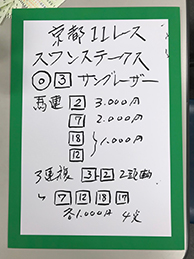 京都11レース
スワンステークス
◎ 3 サングレーザー
馬連 2 3.000円
7 2.000円
18
12 } 1.000円
3連複 3-2 2頭軸
↳ 7 12 18 17
各1.000円 4点